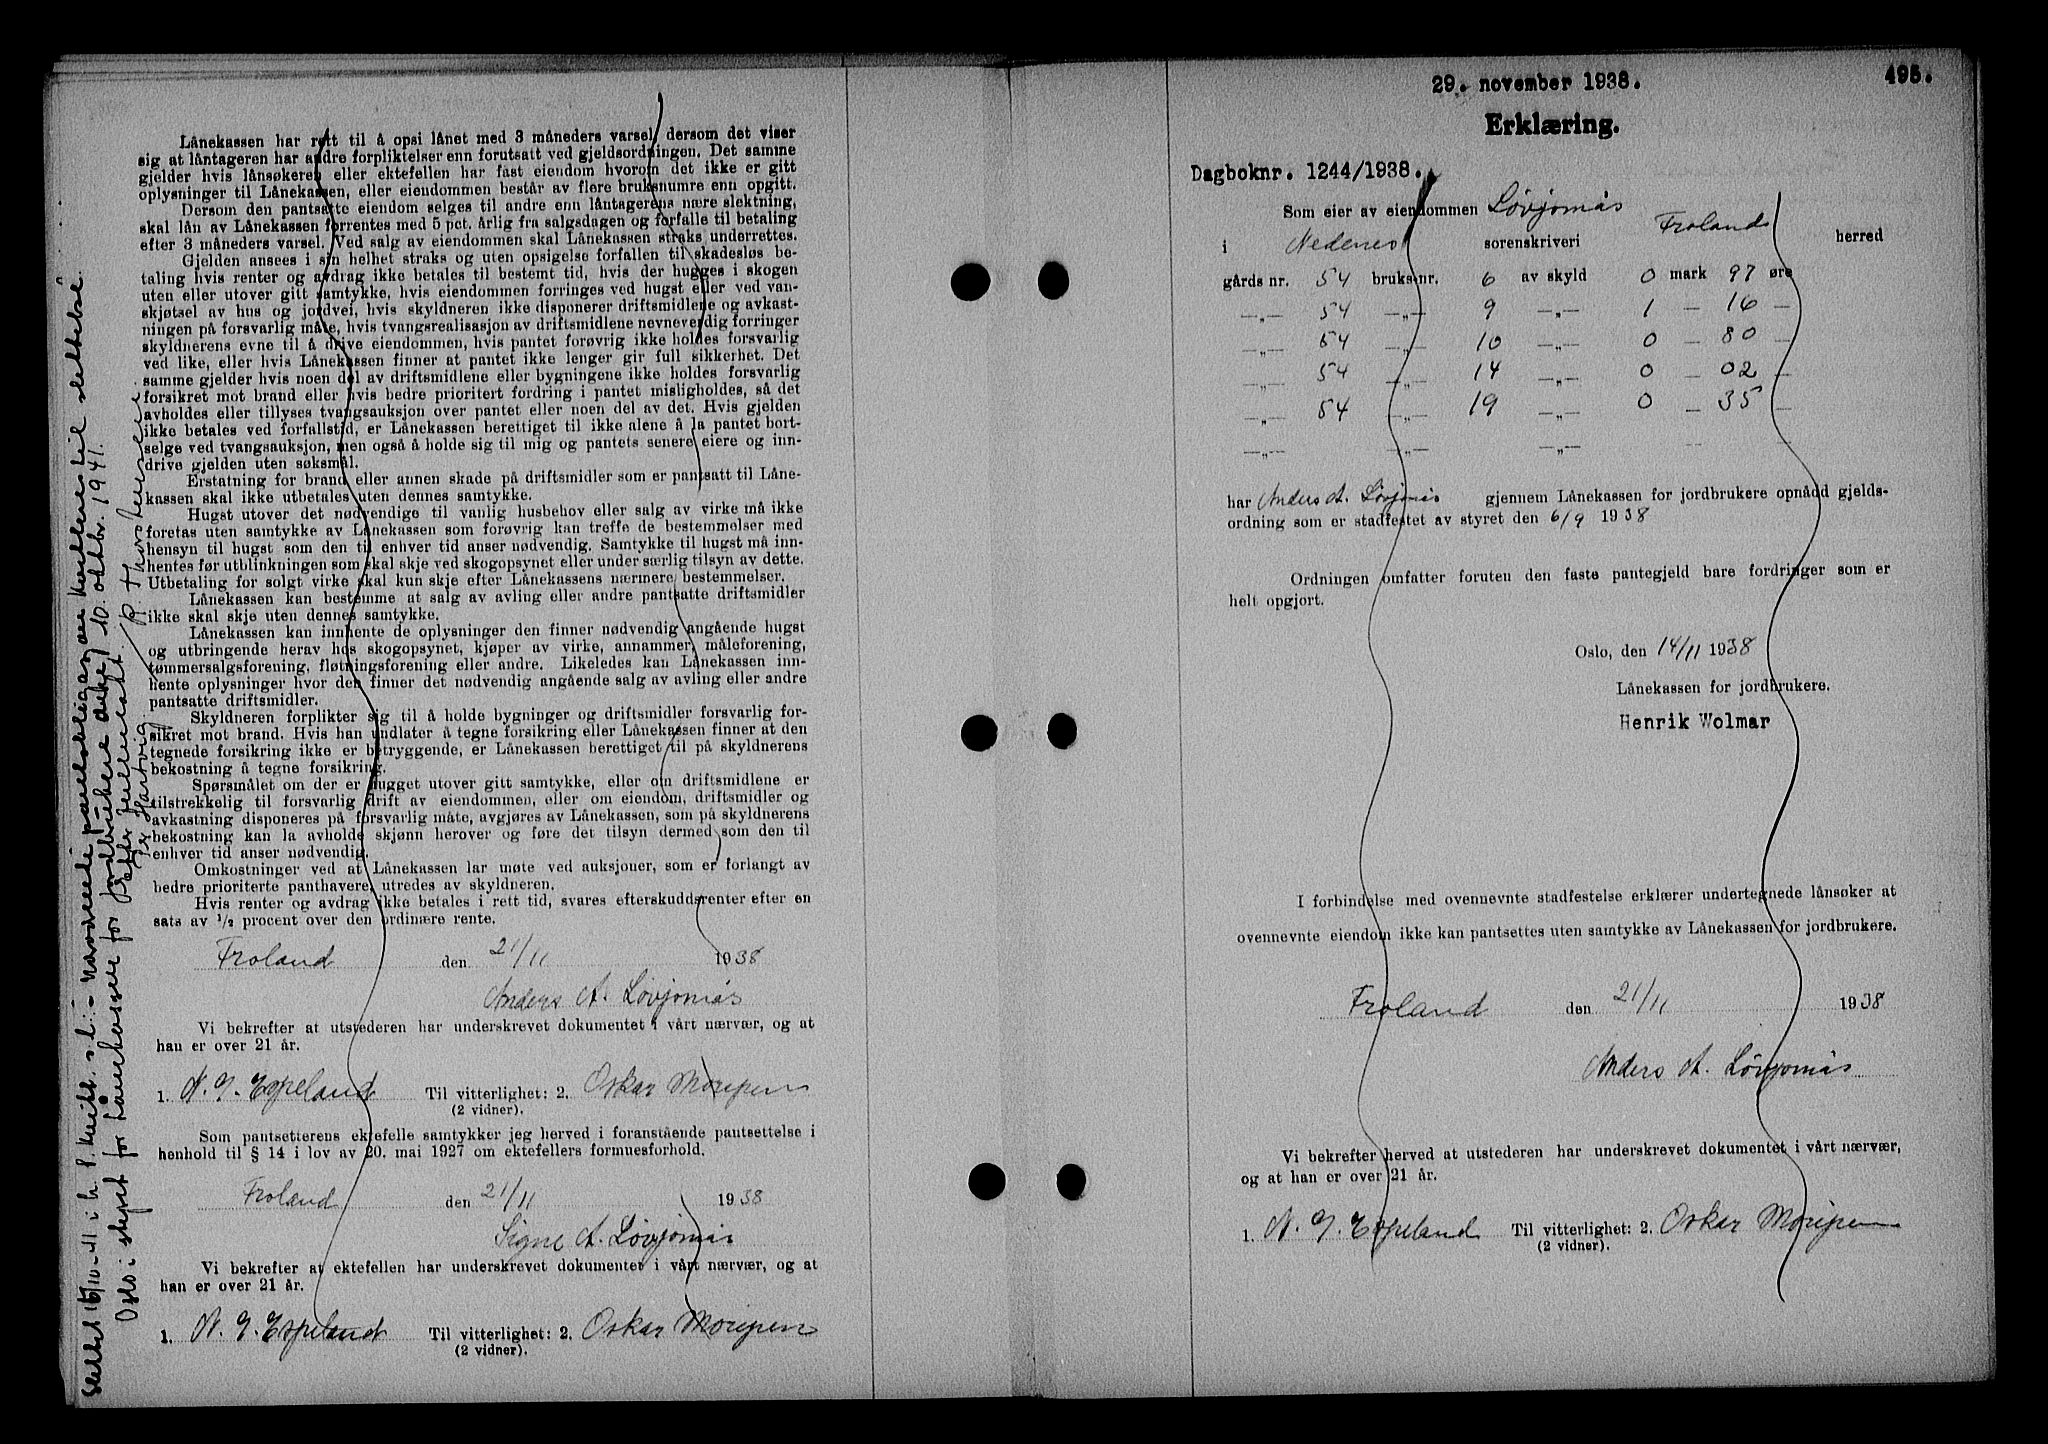 Lånekassen har rett til å opsi lånet med 3 måneders varsel, dersom det viser
sig at låntageren har andre forpliktelser enn forutsatt ved gjeldsordningen. Det samme
gjelder hvis lånsøkeren eller ektefellen har fast eiendom hvorom det ikke er gitt
oplysninger til Lånekassen, eller eiendommen består av flere bruksnumre enn opgitt.
Dersom den pantsatte eiendom selges til andre enn låntagerens nære slektning,
skal lån av Lånekassen forrentes med 5 pct. årlig fra salgsdagen og forfalle til betaling
efter 3 måneders varsel. Ved salg av eiendommen skal Lånekassen straks underrettes.
Gjelden ansees i sin helhet straks og uten opsigelse forfallen til skadesløs be-
taling hvis renter og avdrag ikke betales til bestemt tid, hvis der hugges i skogen
uten eller utover gitt samtykke, hvis eiendommen forringes ved hugst eller ved van-
skjøtsel av hus og jordvei, hvis skyldneren ikke disponerer driftsmidlene og avkast-
ningen på forsvarlig måte, hvis tvangsrealisasjon av driftsmidlene nevneverdig forringer
skyldnerens evne til å drive eiendommen, hvis pantet forøvrig ikke holdes forsvarlig
ved like, eller hvis Lånekassen finner at pantet ikke lenger gir full sikkerhet. Det
samme gjelder hvis noen del av driftsmidlene eller bygningene ikke holdes forsvarlig
forsikret mot brand eller hvis bedre prioritert fordring i pantet misligholdes, så det
avholdes eller tillyses tvangsauksjon over pantet eller noen del av det. Hvis gjelden
ikke betales ved forfallstid, er Lånekassen berettiget til ikke alene å la pantet bort-
selge ved tvangsauksjon, men også å holde sig til mig og pantets senere eiere og inn-
drive gjelden uten søksmål.
Erstatning for brand eller annen skade på driftsmidler som er pantsatt til Låne-
kassen skal ikke utbetales uten dennes samtykke.
Hugst utover det nødvendige til vanlig husbehov eller salg av virke må ikke
foretas uten samtykke av Lånekassen som forøvrig kan treffe de bestemmelser med
hensyn til hugst som den til enhver tid anser nødvendig. Samtykke til hugst må inn-
hentes før utblinkningen som skal skje ved skogopsynet eller under særlig tilsyn av dette.
Utbetaling for solgt virke skal kun skje efter Lånekassens nærmere bestemmelser.
Lånekassen kan bestemme at salg av avling eller andre pantsatte driftsmidler
ikke skal skje uten dennes samtykke.
Lånekassen kan innhente de oplysninger den finner nødvendig angående hugst
og utbringende herav hos skogopsynet, kjøper av virke, annammer, måleforening,
tømmersalgsforening, fløtningsforening eller andre. Likeledes kan Lånekassen inn-
hente oplysninger hvor den finner det nødvendig angående salg av avling eller andre
pantsatte driftsmidler.
Skyldneren forplikter sig til å holde bygninger og driftsmidler forsvarlig for-
sikret mot brand. Hvis han undlater å tegne forsikring eller Lånekassen finner at den
tegnede forsikring ikke er betryggende, er Lånekassen berettiget til på skyldnerens
bekostning å tegne forsikring.
Spørsmålet om der er hugget utover gitt samtykke, eller om driftsmidlene er
tilstrekkelig til forsvarlig drift av eiendommen, eller om eiendom, driftsmidler og
avkastning disponeres på forsvarlig måte, avgjøres av Lånekassen, som på skyldnerens
bekostning kan la avholde skjønn herover og føre det tilsyn dermed som den til
enhver tid anser nødvendig.
Omkostninger ved at Lånekassen lar møte ved auksjoner, som er forlangt av
bedre prioriterte panthavere, utredes av skyldneren.
Hvis renter og avdrag ikke betales i rett tid, svares efterskuddsrenter efter en
sats av 1/2 procent over den ordinære rente.
Froland den 21/11 1938
Anders A. Løvjomås
Vi bekrefter at utstederen har underskrevet dokumentet i vårt nærvær, og at
han er over 21 år.
1. N. G. Espeland Til vitterlighet: 2. Oskar
(2 vidner).
Som pantsetterens ektefelle samtykker jeg herved i foranstående pantsettelse i
henhold til § 14 i lov av 20. mai 1927 om ektefellers formuesforhold.
Froland den 21/11 1938
Signe A. Løvjomås
Vi bekrefter at ektefellen har underskrevet dokumentet i vårt nærvær, og at
han er over 21 år.
1. N. G. Espeland Til vitterlighet: 2. Oskar
(2 vidner).
Slettet 16/10-41 i h. t. kvitt. s. l.: nærværende pantobligasjon kvitteres til slettelse.
Oslo i styret for Lånekassen for jordbrukere den 10. oktbr. 1941.
Efter fullmakt
Hartvig Thorstensen
29. november 1938. 495.
Erklæring.
Dagboknr. 1244/1938.
Som eier av eiendommen Løvjomås
i Nedenes sorenskriveri Froland herred
gårds nr. 54 bruks nr. 6 av skyld 0 mark 97 øre
—„— 54 —„— 9 —„— 1 — 16 —
—„— 54 —„— 10 —„— 0 — 80 —
—„— 54 —„— 14 —„— 0 — 02 —
—„— 54 —„— 19 —„— 0 — 35 —
—„— —„— —„— — —
har Anders A. Løvjomås gjennem Lånekassen for jordbrukere opnådd gjelds-
ordning som er stadfestet av styret den 6/9 1938
Ordningen omfatter foruten den faste pantegjeld bare fordringer som er
helt opgjort.
Oslo, den 14/11 1938
Lånekassen for jordbrukere.
Henrik Wolmar
I forbindelse med ovennevnte stadfestelse erklærer undertegnede lånsøker at
ovennevnte eiendom ikke kan pantsettes uten samtykke av Lånekassen for jordbrukere.
Froland den 21/11 1938
Anders A. Løvjomås
Vi bekrefter herved at utstederen har underskrevet dokumentet i vårt nærvær,
og at han er over 21 år.
1. N. G. Espeland Til vitterlighet: 2. Oskar
(2 vidner).